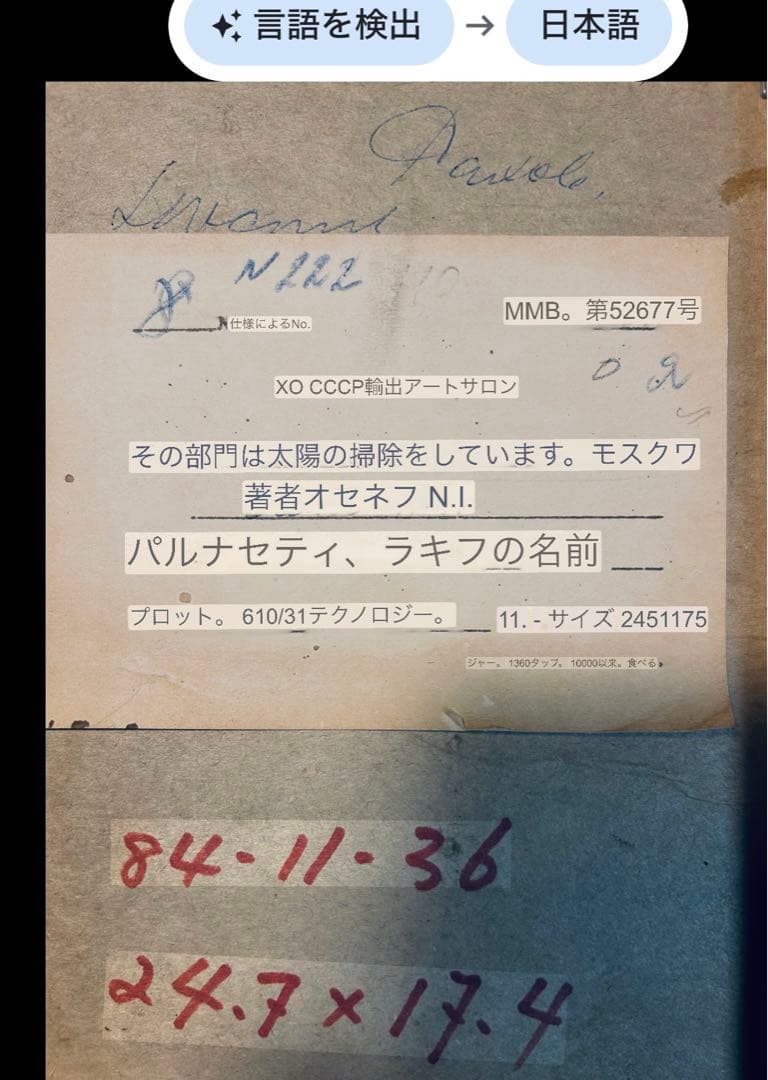 言語を検出 → 日本語
N 222
仕様によるNo.
MMB。第52677号
XO CCCP輸出アートサロン
その部門は太陽の掃除をしています。モスクワ
著者オセネフ N.I.
パルナセティ、ラキフの名前
プロット。 610/31テクノロジー。
11. - サイズ 2451175
ジャー。 1360タップ。 10000以来。食べる
84-11-36
24.7 x 17.4